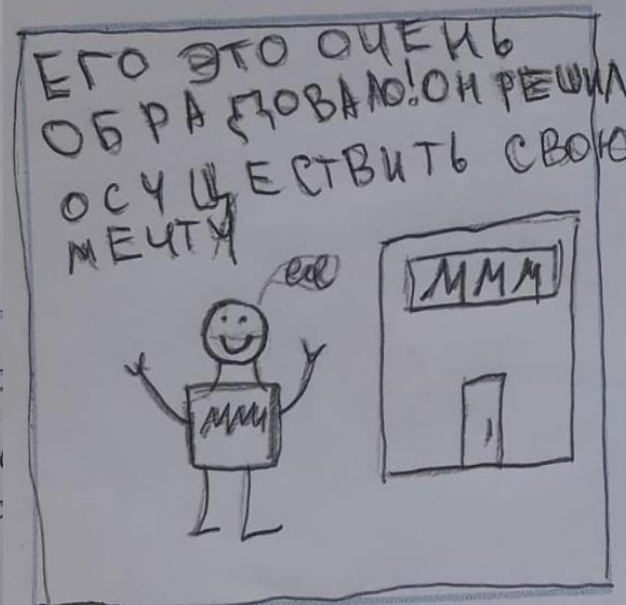 ЕГО ЭТО ОЧЕНЬ
ОБРАДОВАЛО! ОН РЕШИЛ
ОСУЩЕСТВИТЬ СВОЮ
МЕЧТУ
еее
МММ
МММ